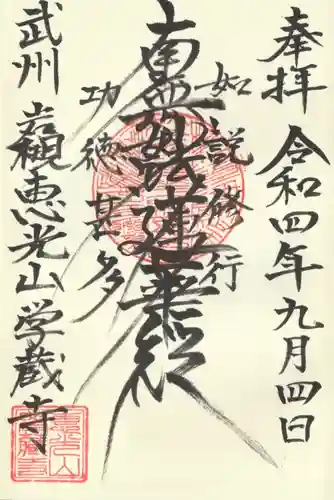 奉拝 令和四年九月四日
如説修行
南無妙法蓮華経
功徳甚多
武州 岩槻 恵光山 学蔵寺